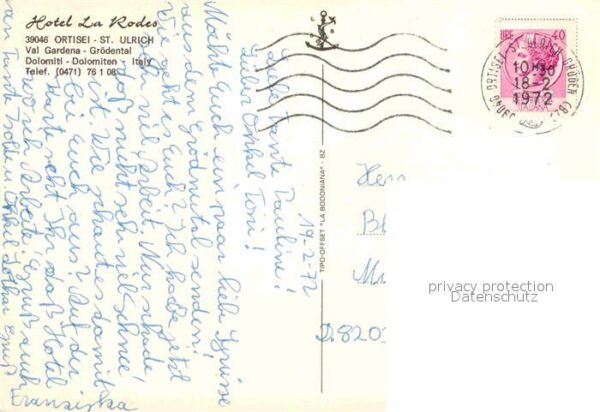 Hotel La Rodes
39046 ORTISEI - ST. ULRICH
Val Gardena - Grödental
Dolomiti - Dolomiten - Italy
Telef. (0471) 76 1 08
LIRE 40
39046 ORTISEI - ST. ULRICH GRÖDEN (BZ)
18-2
1972
TIPO-OFFSET "LA BODONIANA" - BZ
19.2.72
Liebe Tante Pauline!
Lieber Onkel Toni!
Möcht Euch ein paar liebe Grüsse
aus dem Grödnertal senden!
Wie geht es Euch? Ich habe jetzt
sehr viel Arbeit. Nur schade,
daß nicht sehr viel Schnee
ist. Wie schaut es damit
bei Euch aus? Auf der
Karte seht Ihr das Hotel
wo ich Arbeite! Gruß auch
an Tante Trolle u. Onkel Lothar
Franziska
Herr
D 820
privacy protection
Datenschutz